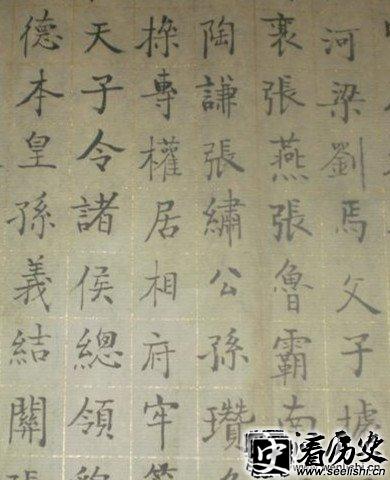 河梁劉焉父子據
襄張燕張魯霸南
陶謙張繡公孫瓚
操專權居相府牢
天子令諸侯總領
德本皇孫義結關
史 看历史
www.seelishi.cn